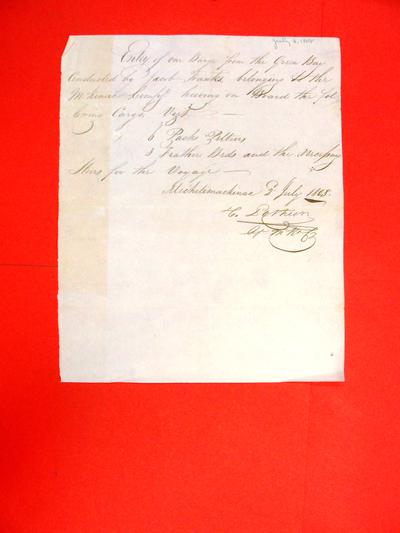 July 2, 1808
Entry of one Barge from the Green Bay
Conducted by Jacob Franks belonging to the
having on Board the fol
lowing Cargo Vizt
6 Packs Peltries
3 Feather Beds and the necessary
Stores for the Voyage
Michilimackinac 2 July 1808.